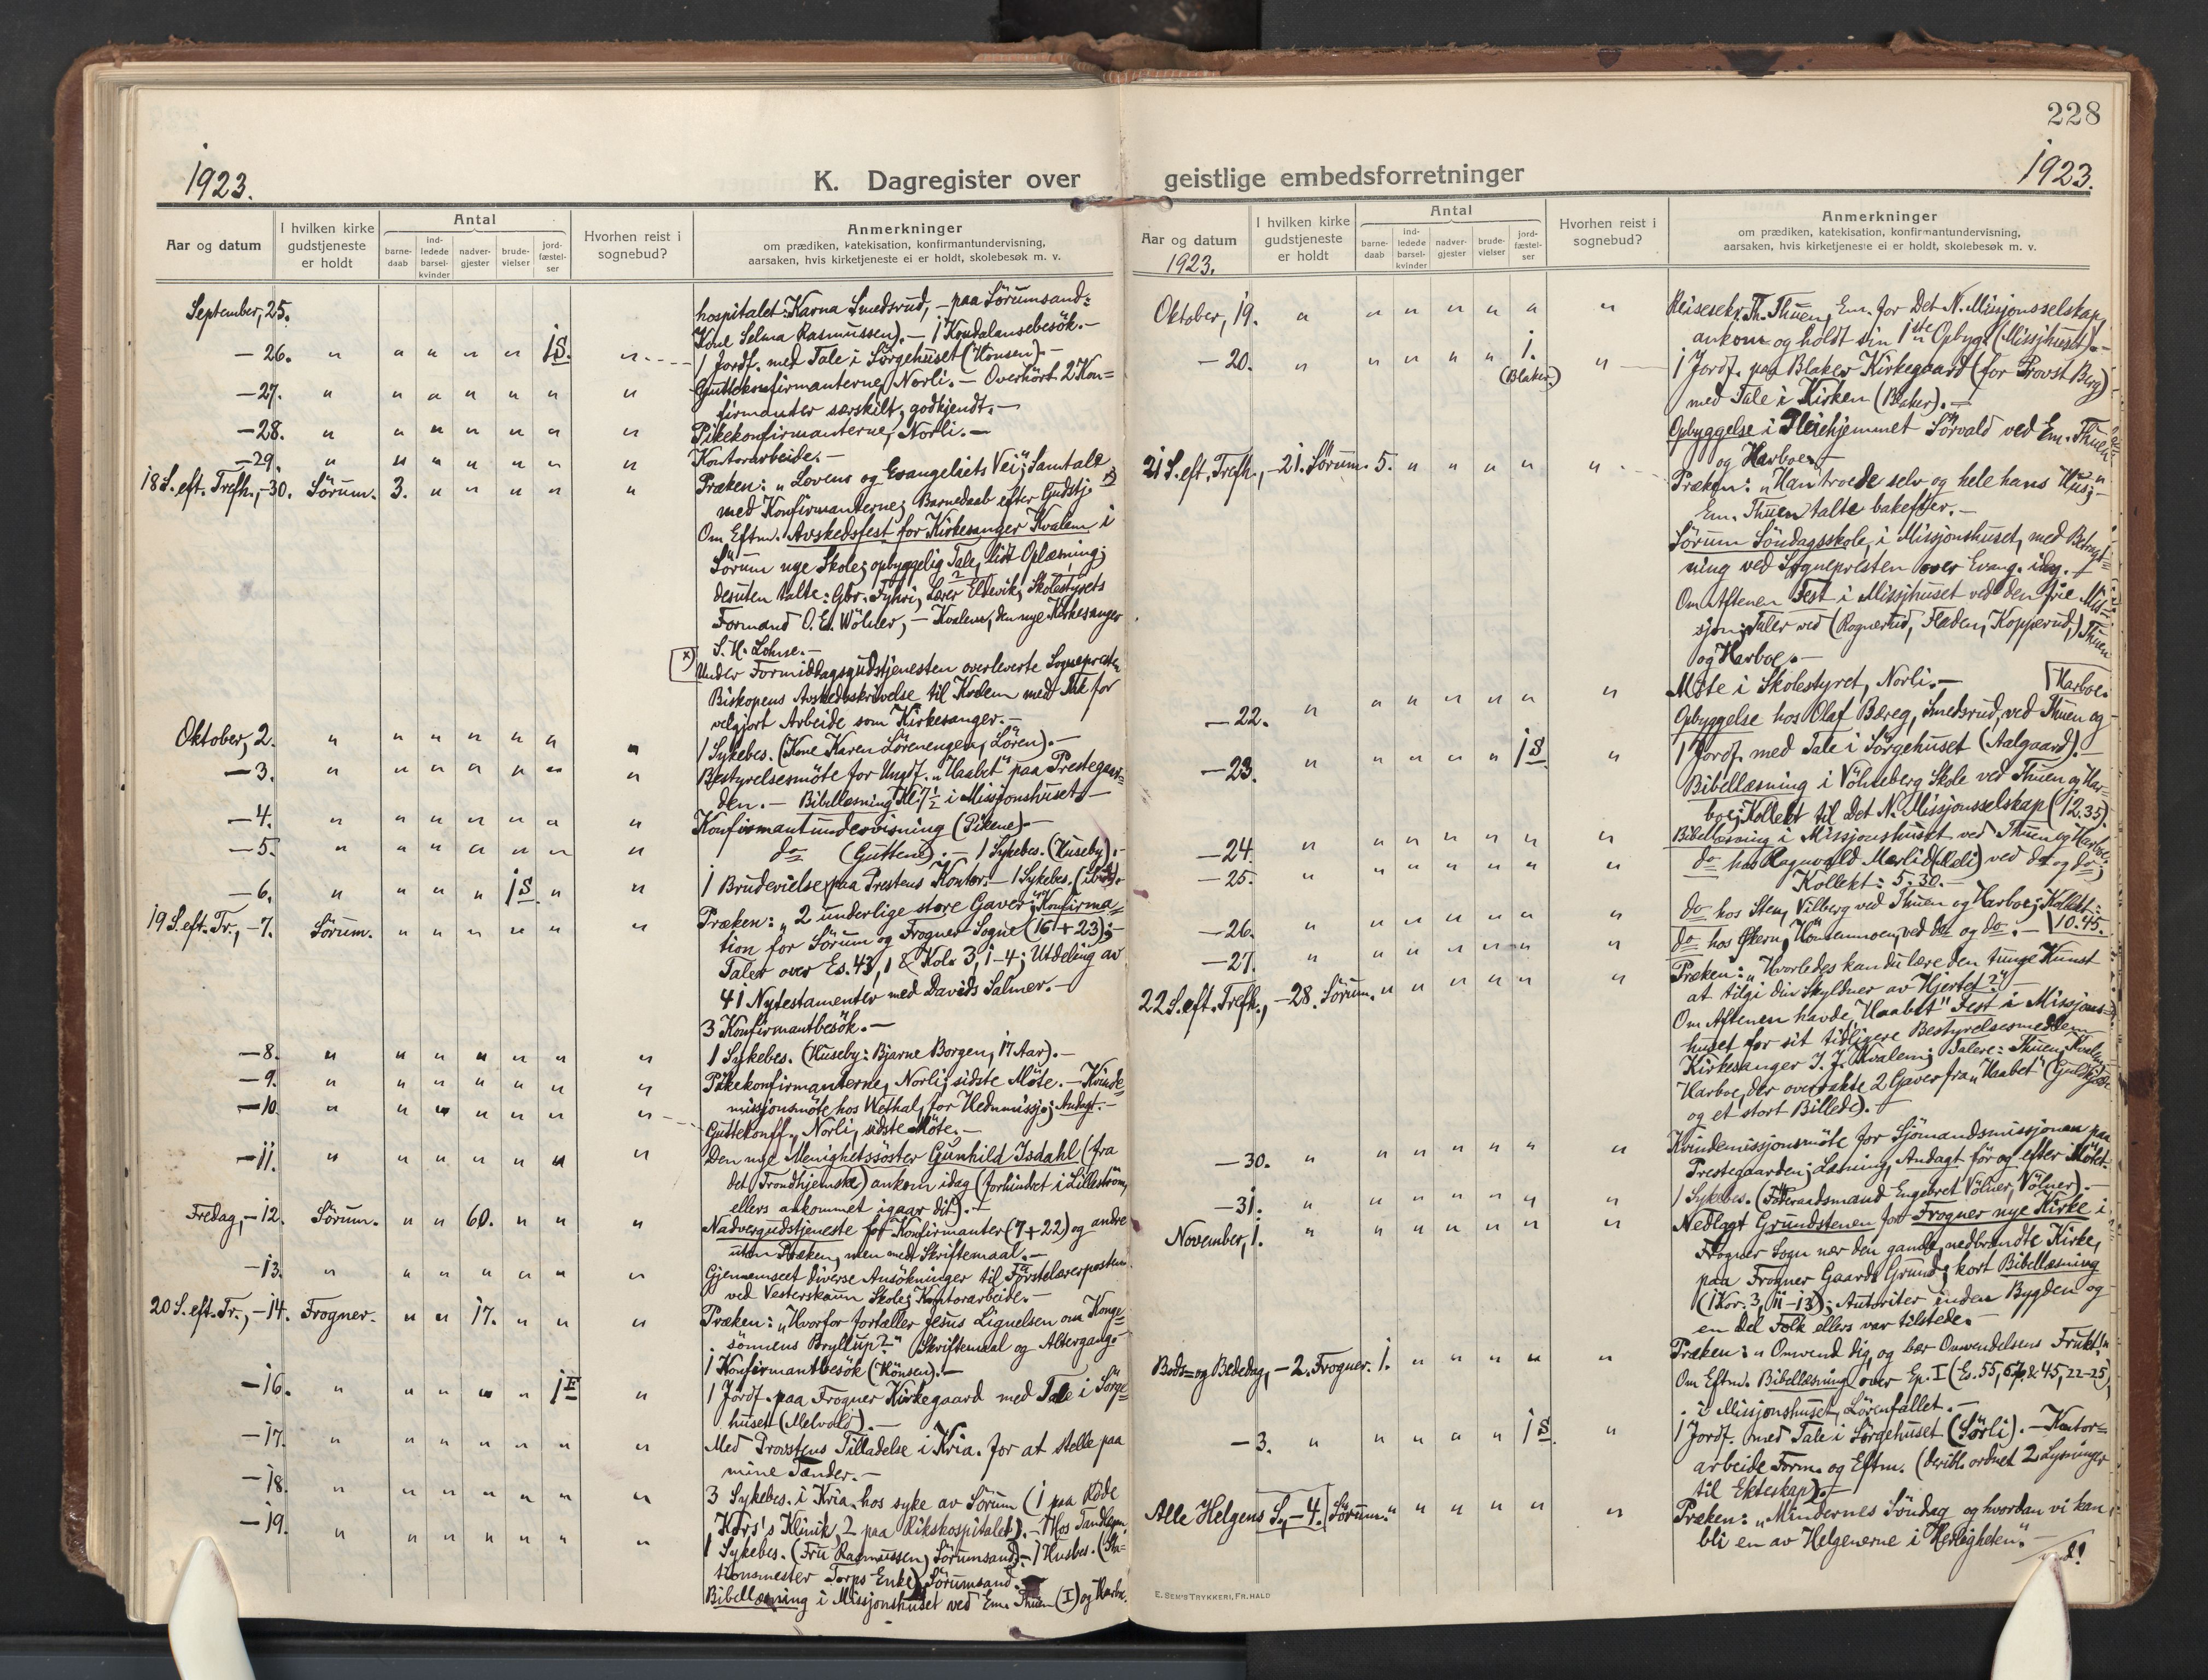 228
1923.
K. Dagregister over
geistlige embedsforretninger
1923.
Aar og datum
I hvilken kirke gudstjeneste er holdt
Antal
barne-daab
ind-ledede barsel-kvinder
nadver-gjester
brude-vielser
jord-fæstel-ser
Hvorhen reist i sognebud?
Anmerkninger
om prædiken, katekisation, konfirmantundervisning,
aarsaken, hvis kirketjeneste ei er holdt, skolebesøk m. v.
September, 25. hospitalet: Karna Smedsrud, – paa Sörumsand:
Kone Selma Rasmussen). – 1 Kondolansebesök. –
– 26. " " " " " 1 S. " 1 Jordf. med Tale i Sörgehuset (Hönsen). –
– 27. " " " " " " " Guttekonfirmanterne, Norli. – Overhört 2 Kon=
firmanter særskilt, godkjendt. –
– 28. " " " " " " " Pikekonfirmanterne, Norli. –
– 29. " " " " " " " Kontorarbeide. –
18 S. eft. Trefh., – 30. Sörum. 3. " " " " " Præken: „Lovens og Evangeliets Vei"; Samtale
med Konfirmanterne; Barnedaab efter Gudstj. x)
Om Eftm. Avskedsfest for Kirkesanger Kvalem i
Sörum nye Skole; opbyggelig Tale, litt Oplæsning;
desuten talte: Gbr. Fyhri, Lærer Eldevik, Skolestyrets
Formand O. E. Wölner, – Kvalem, den nye Kirkesanger
S. H. Lohne. –
x) Under Formiddagsgudstjenesten overleverte Sognepresten
Biskopens Avskedsskrivelse til Kvalem med Tak for
velgjort Arbeide som Kirkesanger. –
Oktober, 2. " " " " " " " 1 Sykebes. (Kone Karen Lörenengen, Lören). –
– 3. " " " " " " " Bestyrelsesmöte for Ungdf. „Haabet" paa Prestegaar=
den. – Bibellæsning Kl. 7½ i Missjonshuset. –
– 4. " " " " " " " Konfirmantundervisning (Pikene). –
– 5. " " " " " " " do (Guttene). – 1 Sykebes. (Huseby). –
– 6. " " " " 1 S. " " 1 Brudevielse paa Prestens Kontor. – 1 Sykebes.
19 S. eft. Tr., – 7. Sörum. " " " " " " Præken: „2 underlige store Gaver"; Konfirma=
tion for Sörum og Frogner Sogne (16 + 23); –
Taler over Es. 43, 1 & Kol. 3, 1–4; Utdeling av
41 Nytestamenter med Davids Salmer. –
3 Konfirmantbesök. –
– 8. " " " " " " " 1 Sykebes. (Huseby: Bjarne Borgen, 17 Aar). –
– 9. " " " " " " " Pikekonfirmanterne, Norli, sidste Möte. – Kvinde=
missjonsmöte hos Wethal, for Hednmissj.; Andagt. –
– 10. " " " " " " " Guttekonff., Norli, sidste Möte. –
– 11. " " " " " " " Den nye Menighetssöster Gunhild Isdahl (fra
det Trondhjemske) ankom idag (forhindret i Lilleström,
ellers ankommet igaar dit). –
Fredag, – 12. Sörum. " " 60. " " " Nadvergudstjeneste for Konfirmanter (7 + 22) og andre
uten Præken, men med Skriftemaal. –
– 13. " " " " " " " Gjennemseet diverse Ansökninger til Förstelærerposten
ved Vesterskaun Skole; Kontorarbeide. –
20 S. eft. Tr., – 14. Frogner. " " 17. " " " Præken: „Hvorfor fortæller Jesus Lignelsen om Konge=
sönnens Bryllup?" Skriftemaal og Altergang. –
1 Konfirmantbesök (Hönsen). –
– 16. " " " " " 1 F " 1 Jordf. paa Frogner Kirkegaard med Tale i Sörge=
huset (Melvold). –
– 17. " " " " " " " Med Provstens Tilladelse i Kria. for at stelle paa
mine Tænder. –
– 18. " " " " " " " 3 Sykebes. i Kria. hos syke av Sörum (1 paa Röde
Kors's Klinik, 2 paa Rikshospitalet). – Hos Tandlægen.
– 19. " " " " " " " 1 Sykebes. (Fru Rasmussen, Sörumsand). – 1 Husbes. (Sta=
tionsmester Torps Enke), Sörumsand.
Bibellæsning i Missjonshuset ved Em. Thuen (I) og Harboe.
Aar og datum
1923.
I hvilken kirke gudstjeneste er holdt
Antal
barne-daab
ind-ledede barsel-kvinder
nadver-gjester
brude-vielser
jord-fæstel-ser
Hvorhen reist i sognebud?
Anmerkninger
om prædiken, katekisation, konfirmantundervisning,
aarsaken, hvis kirketjeneste ei er holdt, skolebesøk m. v.
Oktober, 19. " " " " " " " Reisesekr. Th. Thuen, Em. for Det N. Missjonsselskap,
ankom og holdt sin 1ste Opbygg. (Missjhuset). –
– 20. " " " " " 1. (Blaker) " 1 Jordf. paa Blaker Kirkegaard (for Provst Berg)
med Tale i Kirken (Blaker). –
Opbyggelse i Pleiehjemmet Sörvald ved Em. Thuen
og Harboe. –
21 S. eft. Trefh., – 21. Sörum. 5. " " " " " Præken: „Han troede selv og hele hans Hus"; –
Em. Thuen talte bakefter. –
Sörum Söndagsskole, i Missjonshuset, med Betragt=
ning ved Sognepresten over Evang. idag. –
Om Aftenen Fest i Missjhuset ved den frie Mis=
sjon; Taler ved (Rognerud, Fladen, Kopperud,) Thuen
og Harboe. –
– 22. " " " " " " " Möte i Skolestyret, Norli. –
Opbyggelse hos Olaf Bæreg, Smedsrud, ved Thuen og Harboe.
– 23. " " " " " 1 S. " 1 Jordf. med Tale i Sörgehuset (Aalgaard). –
Bibellæsning i Völneberg Skole ved Thuen og Har=
boe; Kollekt til Det N. Missjonsselskap (12.35).
– 24. " " " " " " " Bibellæsning i Missjonshuset ved Thuen og Harboe.
– 25. " " " " " " " do hos Ragnvald Mærli ved do og do;
Kollekt: 5.30. –
– 26. " " " " " " " do hos Sten, Vilberg ved Thuen og Harboe; Kollekt: 10.45.
– 27. " " " " " " " do hos Økern, Hönsenmoen, ved do og do. –
22 S. eft. Trefh., – 28. Sörum. " " " " " " Præken: „Hvorledes kan du lære den tunge Kunst
at tilgi din Skyldner av Hjertet?" –
Om Aftenen havde „Haabet" Fest i Missjons=
huset for sit tidligere Bestyrelsesmedlem
Kirkesanger J. J. Kvalem; Talere: Thuen, Kvalem,
Harboe, der overrakte 2 Gaver fra „Haabet"
og et stort Billede). –
– 30. " " " " " " " Kvindemissjonsmöte for Sjömandsmissjonen paa
Prestegaarden; Læsning, Andagt för og efter Mötet.
– 31. " " " " " " " 1 Sykebes. (Föderaadsmand Engebret Völner, Völner). –
November, 1. " " " " " " " Nedlagt Grundstenen for Frogner nye Kirke i
Frogner Sogn nær den gamle, nedbrændte Kirke,
paa Frogner Gaards Grund; kort Bibellæsning
(1 Kor. 3, 11–13); Autoriter inden Bygden og
en Del Folk ellers var tilstede. –
Bods= og Bededag, – 2. Frogner. 1. " " " " " Præken: „Omvend dig, og bær Omvendelsens Frukt!"
Om Eftm. Bibellæsning over Ep. I (Es. 55, 6 & 45, 22–25),
i Missjonshuset, Lörenfallet. –
– 3. " " " " " 1 S. " 1 Jordf. med Tale i Sörgehuset (Sörli). – Kontor=
arbeide Form. og Eftm. (deribl. ordnet 2 Lysninger
til Ekteskap). –
Alle Helgens S., – 4. Sörum. " " " " " " Præken: „Mindernes Söndag og hvordan vi kan
bli en av Helgenerne i Herligheten". –
vend!
E. SEM'S TRYKKERI, FR. HALD